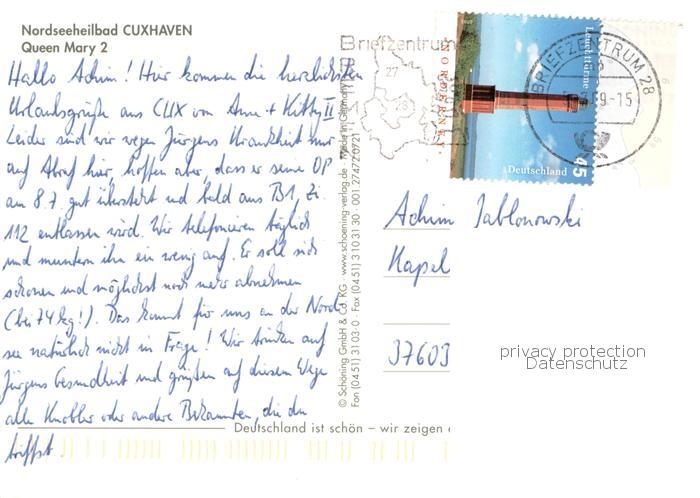 Nordseeheilbad CUXHAVEN
Queen Mary 2
Hallo Achim! Hier kommen die herzlichsten
Urlaubsgrüße aus CUX von Anne + Kitty II
Leider sind wir wegen Jürgens Krankheit nur
auf Abruf hier, hoffen aber, dass er seine OP
am 8.7. gut übersteht und bald aus B1, Zi.
112 entlassen wird. Wir telefonieren täglich
und muntern ihn ein wenig auf. Er soll sich
schonen und möglichst noch mehr abnehmen
(bei 74 kg!). Das kommt für uns an der Nord-
see natürlich nicht in Frage! Wir trinken auf
Jürgens Gesundheit und grüßen auf diesem Wege
alle Knobler oder andere Bekannten, die du
triffst.
Deutschland ist schön – wir zeigen
© Schöning GmbH & Co. KG · www.schoening-verlag.de · Made in Germany
Fon (04 51) 31 03 0 · Fax (04 51) 3 10 31 30 · 001 27472 0721
Briefzentrum
27
28
NORDERNEY
Leuchttürme
Deutschland
45
BRIEFZENTRUM 28
09-15
Achim Jablonowski
Kapel
37603
privacy protection
Datenschutz